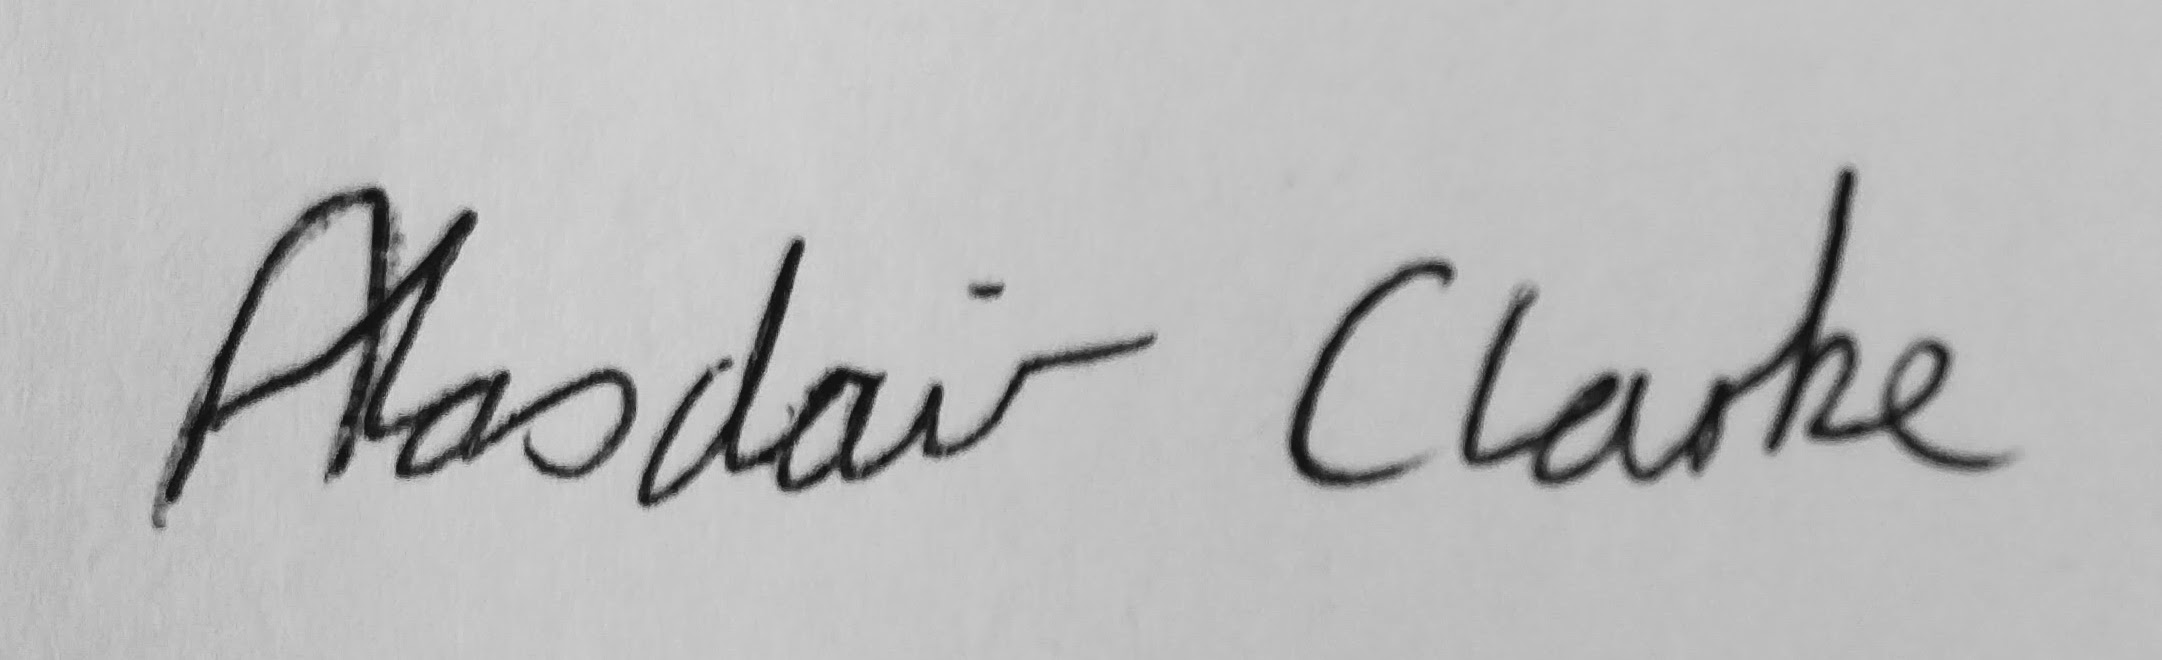 Alasdair Clarke